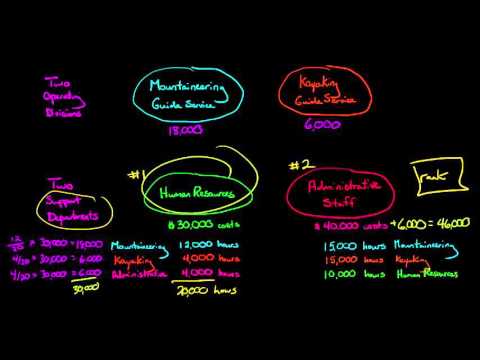 Two
Operating
Divisions
Mountaineering
Guide Service
18,000
Kayaking
Guide Service
6,000
#1
#2
rank
Two
Support
Departments
Human Resources
Administrative
Staff
$30,000 costs
$40,000 costs +6,000 = 46,000
12/20 × 30,000 = 18,000 Mountaineering 12,000 hours
15,000 hours Mountaineering
4/20 × 30,000 = 6,000 Kayaking 4,000 hours
15,000 hours Kayaking
4/20 × 30,000 = 6,000 Administrative 4,000 hours
10,000 hours Human Resources
30,000
20,000 hours